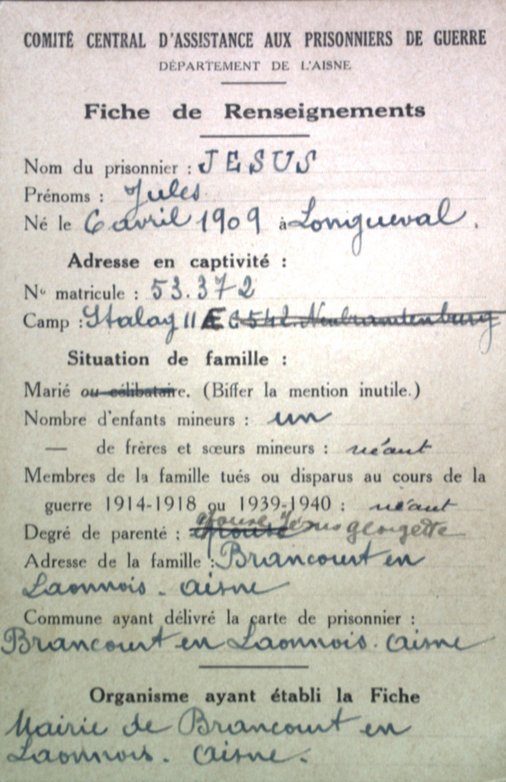 COMITÉ CENTRAL D'ASSISTANCE AUX PRISONNIERS DE GUERRE
DÉPARTEMENT DE L'AISNE
Fiche de Renseignements
Nom du prisonnier : JESUS
Prénoms : Jules
Né le 6 avril 1909 à Longueval.
Adresse en captivité :
N° matricule : 53.372
Camp : Stalag II E C 542. Neubrandenburg
Situation de famille :
Marié ou célibataire. (Biffer la mention inutile.)
Nombre d'enfants mineurs : un
— de frères et sœurs mineurs : néant
Membres de la famille tués ou disparus au cours de la
guerre 1914-1918 ou 1939-1940 : néant
Degré de parenté : épouse Jésus georgette
Adresse de la famille : Brancourt en
Laonnois. Aisne
Commune ayant délivré la carte de prisonnier :
Brancourt en Laonnois. Aisne
Organisme ayant établi la Fiche
Mairie de Brancourt en
Laonnois. Aisne.